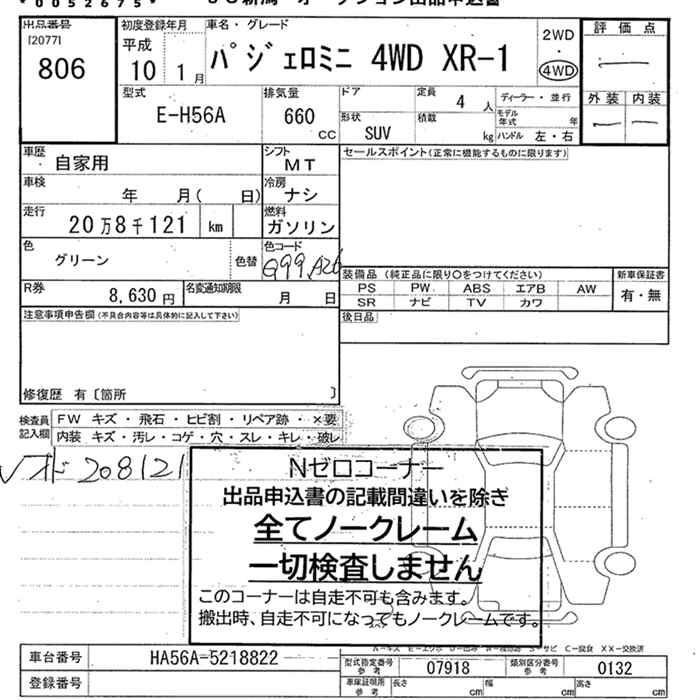 *0052675*
出品番号 初度登録年月 車名・グレード
[2077]
806
平成 10 1月
パジェロミニ 4WD XR-1
2WD
・
4WD
評価点
外装 内装
型式 排気量 ドア 定員 4人 ディーラー・並行
E-H56A 660 cc 形状 SUV 積載 kg モデル年式 年
ハンドル 左・右
車歴 自家用 シフト MT セールスポイント(正常に機能するものに限ります)
車検 年 月( 日) 冷房 ナシ
走行 20万8千121 km 燃料 ガソリン
色 グリーン 色替 色コード
R券 8,630円 名変通知期限 月 日
装備品(純正品に限り○をつけてください) 新車保証書
PS PW ABS エアB AW 有・無
SR ナビ TV カワ
注意事項申告欄(不具合内容等は具体的に記入して下さい) 後日品
修復歴 有〔箇所 〕
検査員記入欄 FW キズ・飛石・ヒビ割・リペア跡・×要
内装 キズ・汚レ・コゲ・穴・スレ・キレ・破レ
208121
Nゼロコーナー
出品申込書の記載間違いを除き
全てノークレーム
一切検査しません
このコーナーは自走不可も含みます。
搬出時、自走不可になってもノークレームです。
車台番号 HA56A-5218822 型式指定番号 参考 07918 類別区分番号 参考 0132
登録番号 車庫証明所 参考 長さ cm 幅 cm 高さ cm